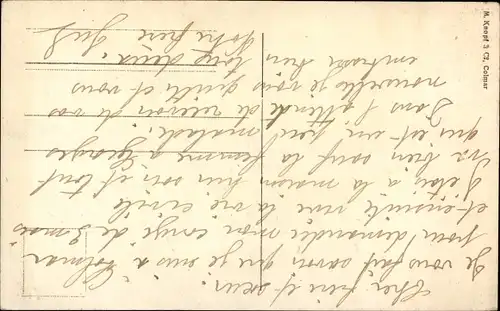 Cher frère et sœur.
Je vous fait savoir que je suis à Colmar
pour demander mon congé de 3 mois
et ensuite vive la vie civile
J'étais à la maison hier soir et tout
va bien sauf la femme à Georges
qui est un peu malade.
Dans l'attente de recevoir de vos
nouvelles je vous quitte et vous
embrasse bien
tous deux.
Votre frère
M. Knopf & Cie, Colmar